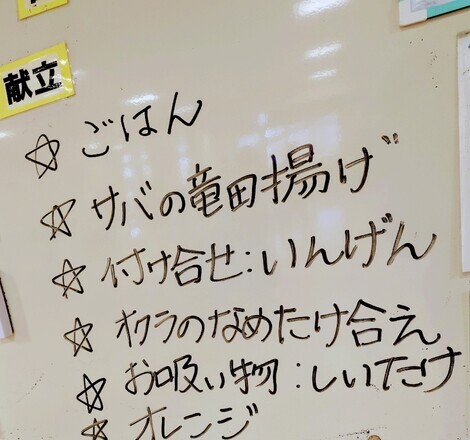 献立
☆ ごはん
☆ サバの竜田揚げ
☆ 付け合せ:いんげん
☆ オクラのなめたけ合え
☆ お吸い物:しいたけ
☆ オレンジ